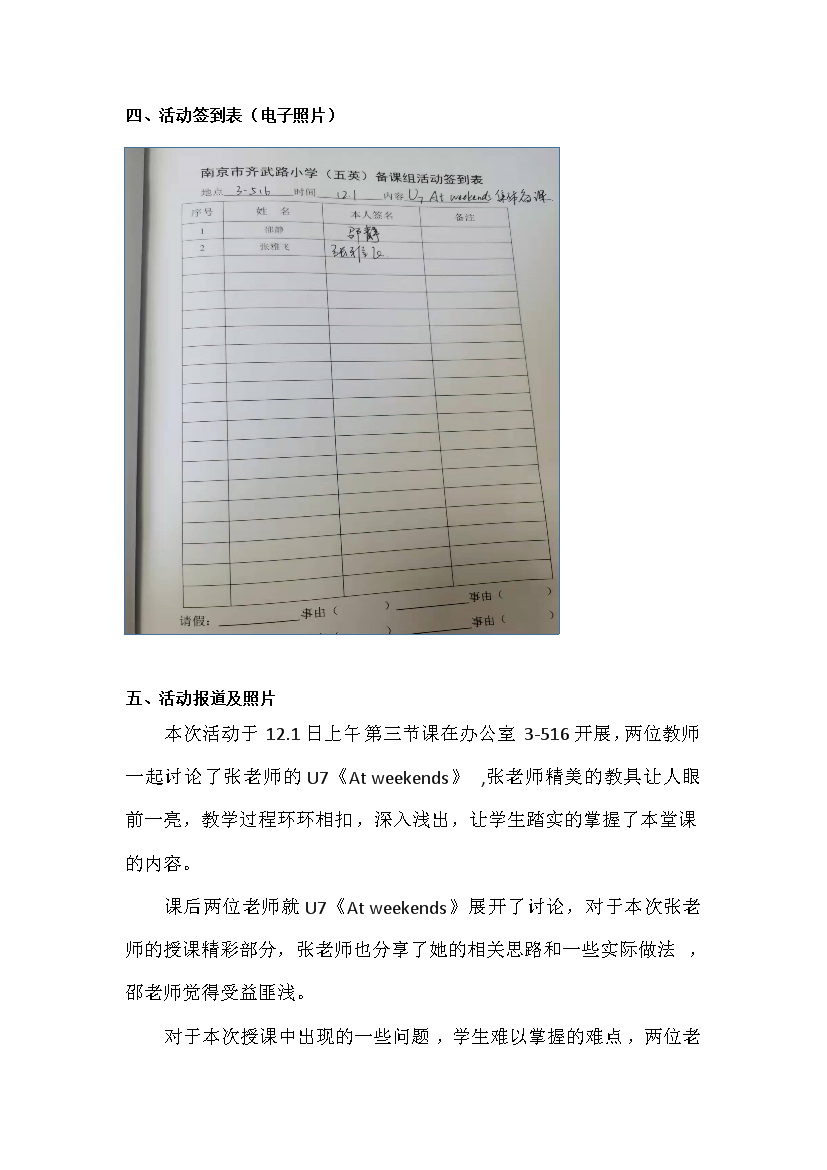 四、活动签到表（电子照片）
南京市齐武路小学（五英）备课组活动签到表
地点 3-516 时间 12.1 内容 U7 At weekends 集体备课
序号 姓 名 本人签名 备注
1 邵静 邵静
2 张雅飞 张雅飞
请假： 事由（ ） 事由（ ）
） 事由（ ）
五、活动报道及照片
本次活动于 12.1 日上午第三节课在办公室 3-516 开展，两位教师
一起讨论了张老师的 U7《At weekends》 ,张老师精美的教具让人眼
前一亮，教学过程环环相扣，深入浅出，让学生踏实的掌握了本堂课
的内容。
课后两位老师就 U7《At weekends》展开了讨论，对于本次张老
师的授课精彩部分，张老师也分享了她的相关思路和一些实际做法 ，
邵老师觉得受益匪浅。
对于本次授课中出现的一些问题，学生难以掌握的难点，两位老